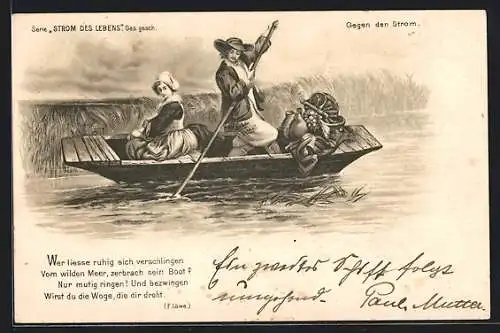 Serie „STROM DES LEBENS". Ges. gesch.
Gegen den Strom.
Wer liesse ruhig sich verschlingen
Vom wilden Meer, zerbrach sein Boot?
Nur mutig ringen! Und bezwingen
Wirst du die Woge, die dir droht.
(F. Löwe.)
Ein zweites Schiff folgt
umgehend. Paul, Mutter